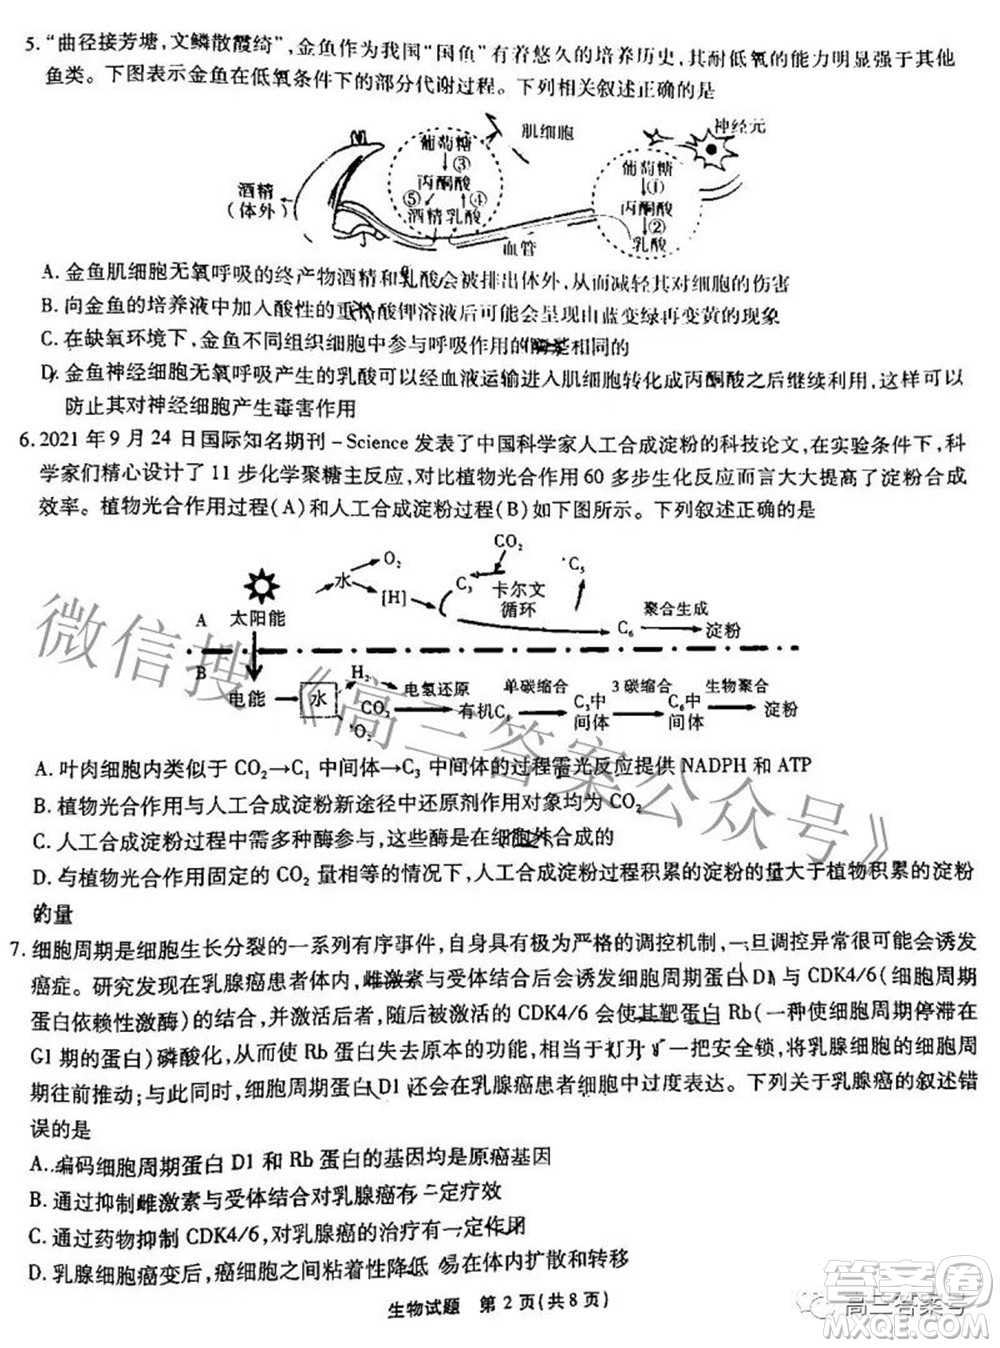 5. “曲径接芳塘，文鳞散霞绮”，金鱼作为我国“国鱼”有着悠久的培养历史，其耐低氧的能力明显强于其他
鱼类。下图表示金鱼在低氧条件下的部分代谢过程。下列相关叙述正确的是
酒精
(体外)
葡萄糖
③
丙酮酸
⑤ ④
酒精 乳酸
肌细胞
血管
神经元
葡萄糖
①
丙酮酸
②
乳酸
A. 金鱼肌细胞无氧呼吸的终产物酒精和乳酸会被排出体外，从而减轻其对细胞的伤害
B. 向金鱼的培养液中加入酸性的重铬酸钾溶液后可能会呈现由蓝变绿再变黄的现象
C. 在缺氧环境下，金鱼不同组织细胞中参与呼吸作用的酶是相同的
D. 金鱼神经细胞无氧呼吸产生的乳酸可以经血液运输进入肌细胞转化成丙酮酸之后继续利用，这样可以
防止其对神经细胞产生毒害作用
6. 2021 年 9 月 24 日国际知名期刊－Science 发表了中国科学家人工合成淀粉的科技论文，在实验条件下，科
学家们精心设计了 11 步化学聚糖主反应，对比植物光合作用 60 多步生化反应而言大大提高了淀粉合成
效率。植物光合作用过程(A)和人工合成淀粉过程(B)如下图所示。下列叙述正确的是
太阳能
A
B
水
O₂
[H]
CO₂
C₃
卡尔文
循环
C₅
C₆
聚合生成
淀粉
电能
水
H₂
O₂
CO₂
电氢还原
有机C₁
单碳缩合
C₃中
间体
3 碳缩合
C₆中
间体
生物聚合
淀粉
A. 叶肉细胞内类似于 CO₂→C₁ 中间体→C₃ 中间体的过程需光反应提供 NADPH 和 ATP
B. 植物光合作用与人工合成淀粉新途径中还原剂作用对象均为 CO₂
C. 人工合成淀粉过程中需多种酶参与，这些酶是在细胞外合成的
D. 与植物光合作用固定的 CO₂ 量相等的情况下，人工合成淀粉过程积累的淀粉的量大于植物积累的淀粉
的量
7. 细胞周期是细胞生长分裂的一系列有序事件，自身具有极为严格的调控机制，一旦调控异常很容易诱发
癌症。研究发现在乳腺癌患者体内，雌激素与受体结合后会诱发细胞周期蛋白 D1 与 CDK4/6(细胞周期
蛋白依赖性激酶)的结合，并激活后者，随后被激活的 CDK4/6 会使其靶蛋白 Rb(一种使细胞周期停滞在
G1 期的蛋白)磷酸化，从而使 Rb 蛋白失去原本的功能，相当于打开了一把安全锁，将乳腺细胞的细胞周
期往前推动；与此同时，细胞周期蛋白 D1 还会在乳腺癌患者细胞中过度表达。下列关于乳腺癌的叙述错
误的是
A. 编码细胞周期蛋白 D1 和 Rb 蛋白的基因均是原癌基因
B. 通过抑制雌激素与受体结合对乳腺癌有一定疗效
C. 通过药物抑制 CDK4/6，对乳腺癌的治疗有一定作用
D. 乳腺细胞癌变后，癌细胞之间粘着性降低，易在体内扩散和转移
生物试题 第 2 页(共 8 页)
微信搜《高三答案公众号》
高三答案号
答案圈
MXQE.COM